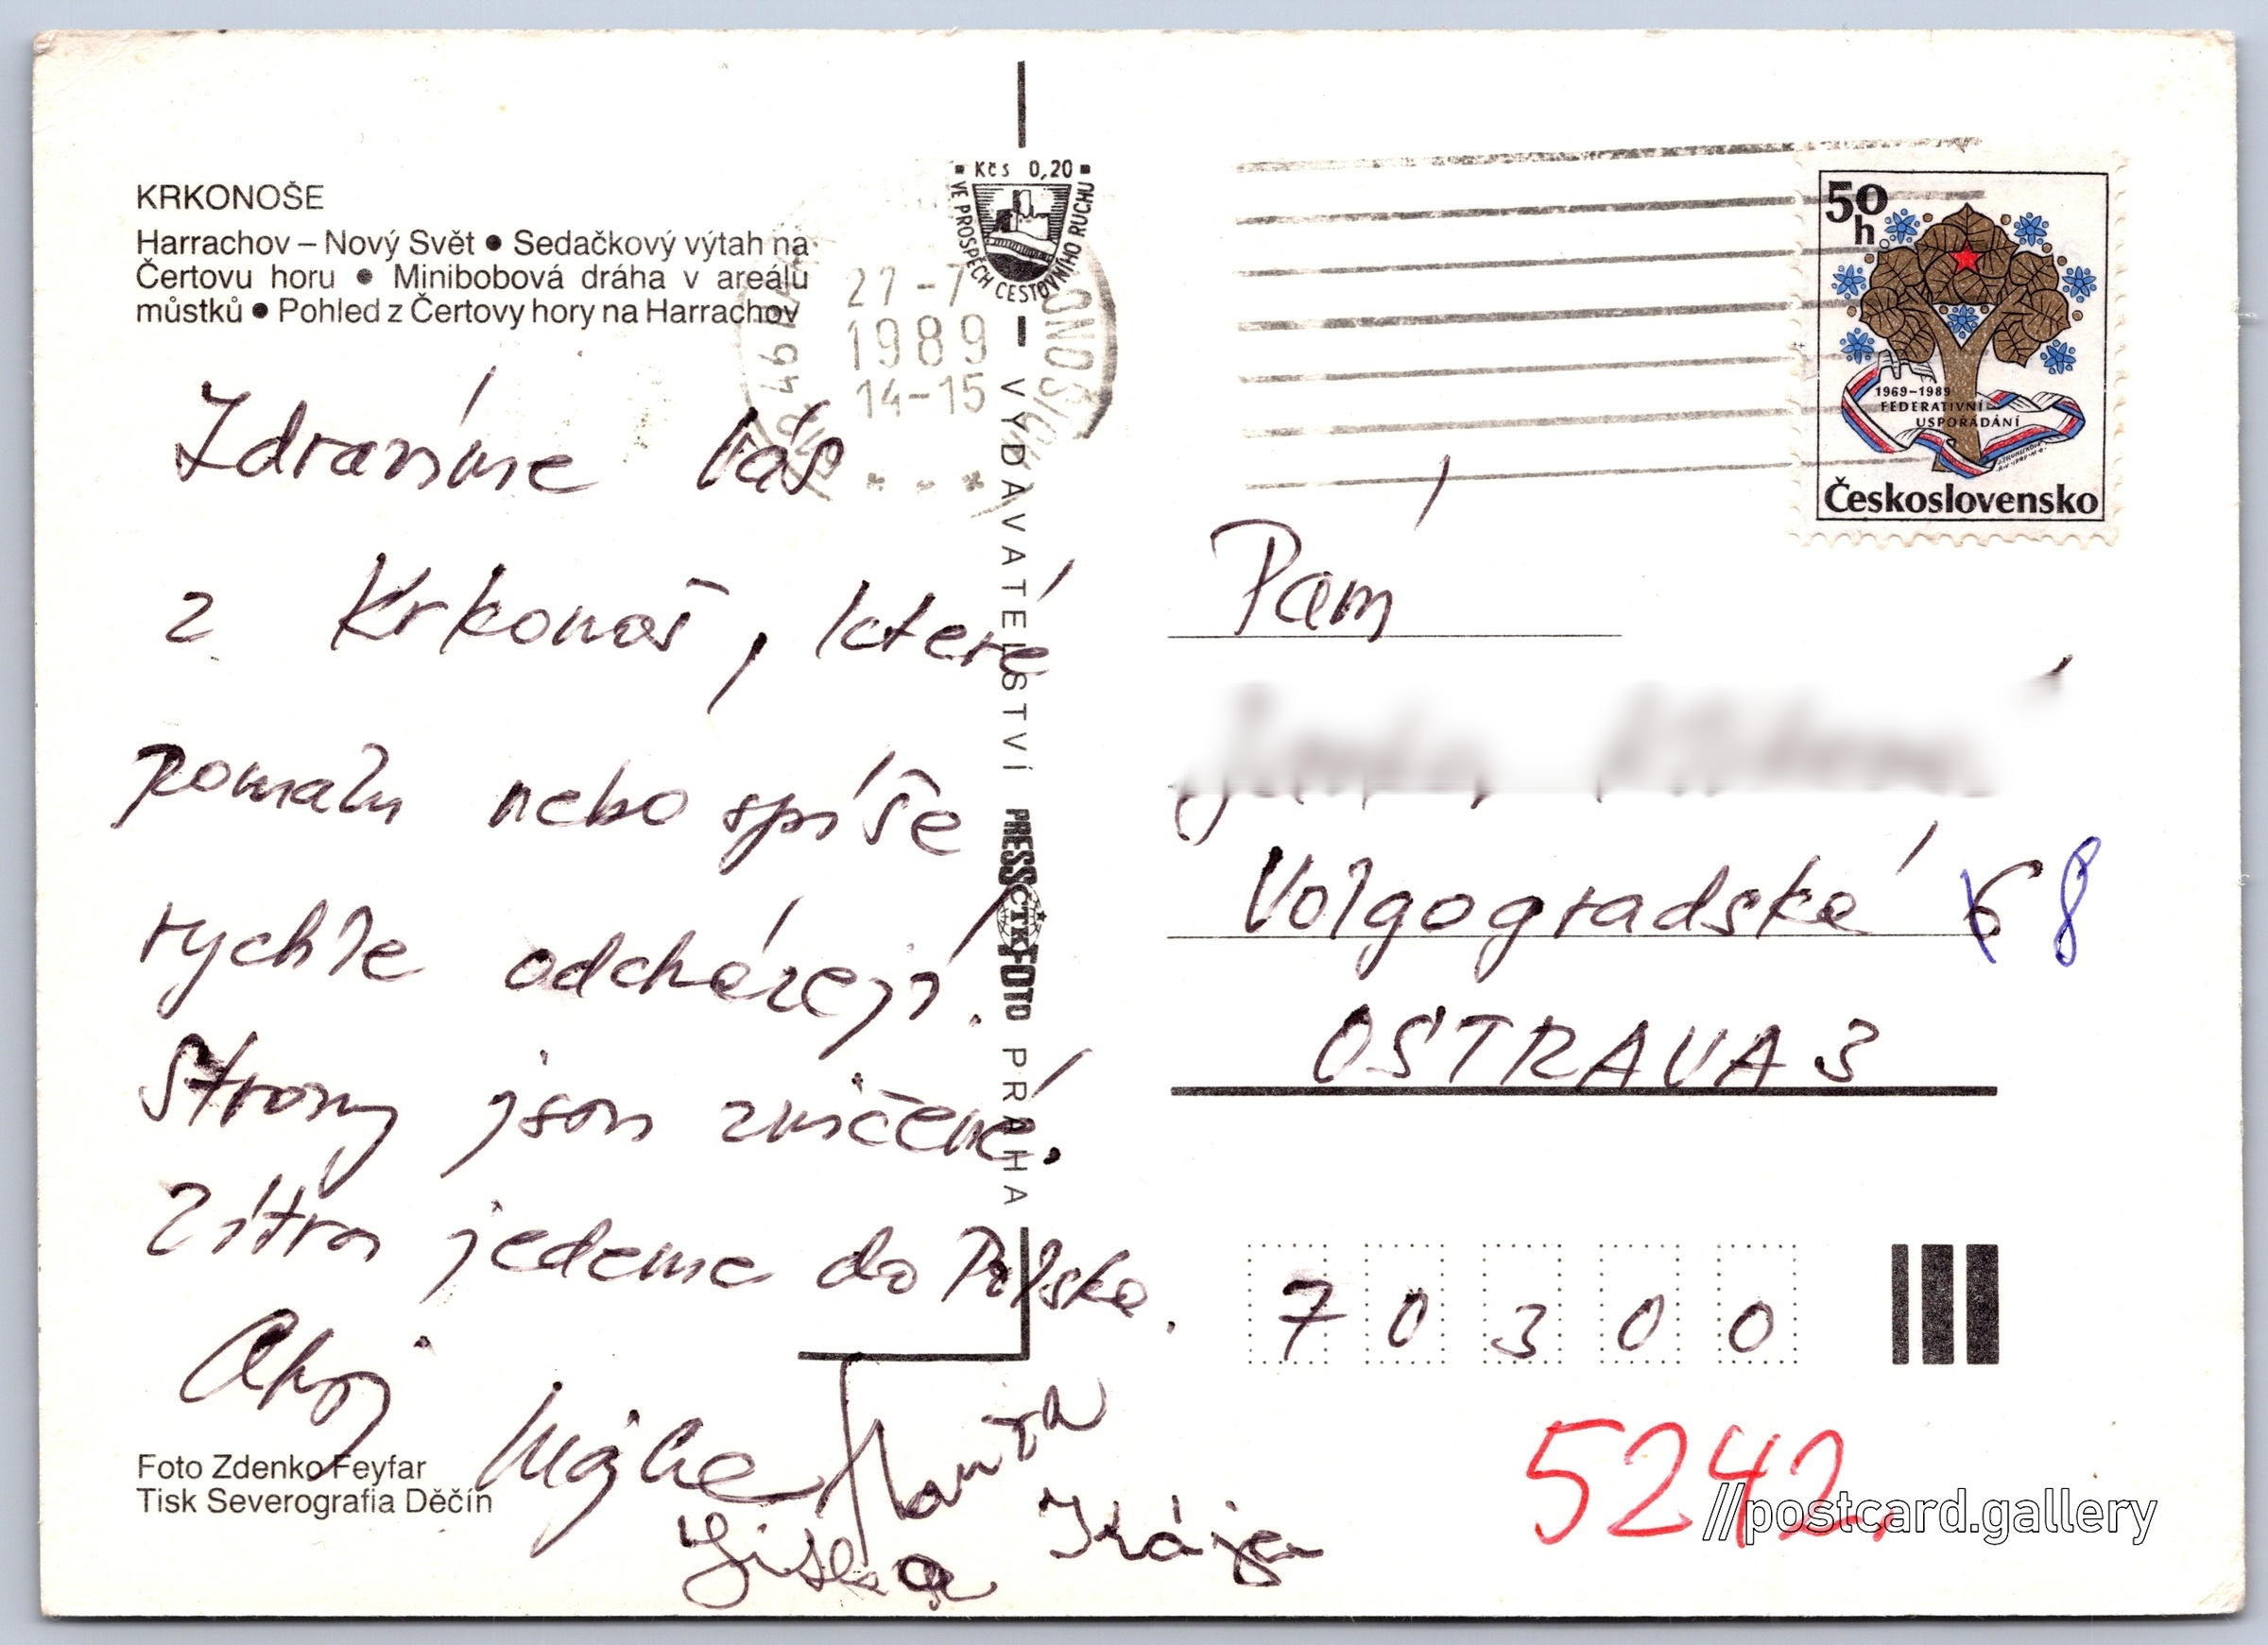 KRKONOŠE
Harrachov – Nový Svět ● Sedačkový výtah na
Čertovu horu ● Minibobová dráha v areálu
můstků ● Pohled z Čertovy hory na Harrachov
Kčs 0,20
VE PROSPĚCH CESTOVNÍHO RUCHU
27-7
1989
14-15
50
h
1969–1989
FEDERATIVNÍ
USPOŘÁDÁNÍ
Československo
Zdravíme Vás
z Krkonoš, které
pomalu nebo spíše
rychle odcházejí.
Stromy jsou zničené.
Zítra jedeme do Polska.
Ahoj
Jiška
VYDAVATELSTVÍ PRESSFOTO PRAHA
ČTK
Paní
Volgogradská 6 8
OSTRAVA 3
70300
5242
Foto Zdenko Feyfar
Tisk Severografia Děčín
//postcard.gallery